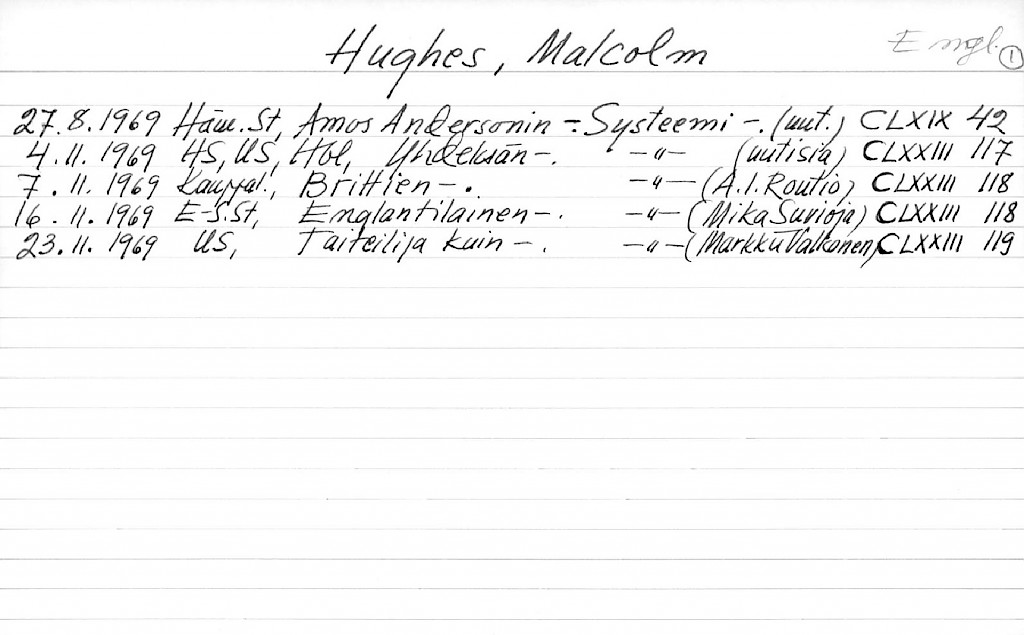 Hughes, Malcolm Engl. 1
27.8.1969 Häm.St, Amos Andersonin -. Systeemi -. (uut.) CLXIX 42
4.11.1969 HS, US, Hbl, Yhdeksän -. -"- (uutisia) CLXXIII 117
7.11.1969 Kauppal., Brittien -. -"- (A.I. Routio) CLXXIII 118
16.11.1969 E-S.St, Englantilainen -. -"- (Mika Suvioja) CLXXIII 118
23.11.1969 US, Taiteilija kuin -. -"- (Markku Valkonen) CLXXIII 119